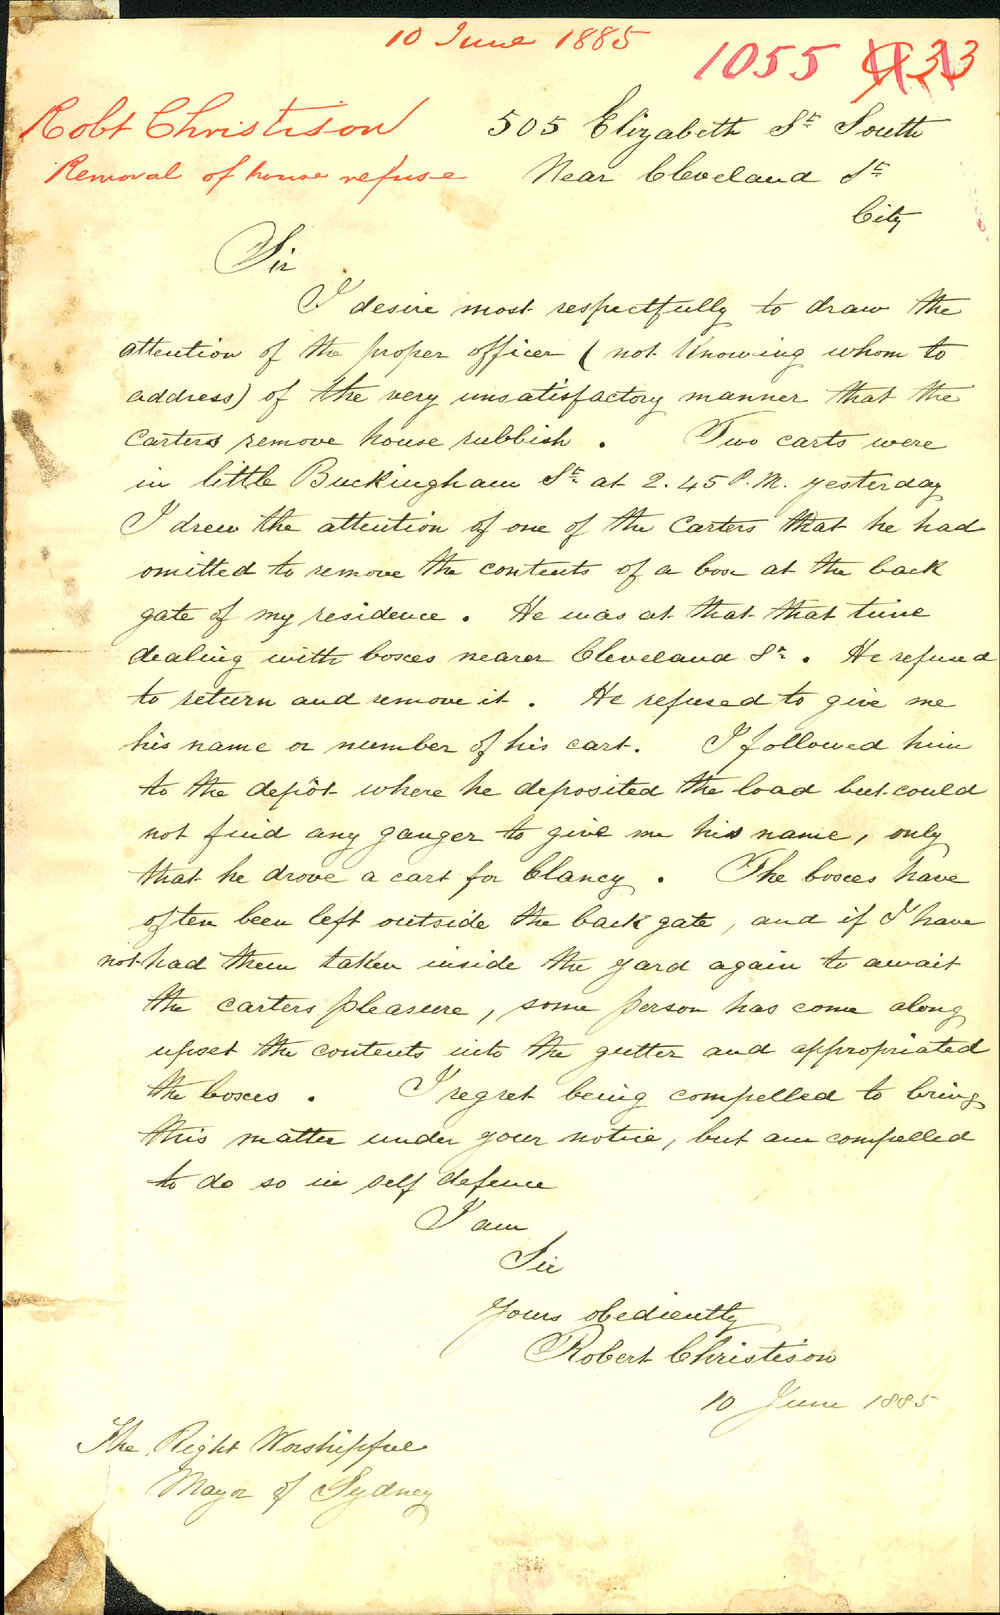 10 June 1885
1055
Robt Christison
Removal of house refuse
505 Elizabeth St South
Near Cleveland St
City
Sir
I desire most respectfully to draw the
attention of the proper officer (not knowing whom to
address) of the very unsatisfactory manner that the
carters remove house rubbish. Two carts were
in little Buckingham St at 2.45 P.M. yesterday
I drew the attention of one of the carters that he had
omitted to remove the contents of a box at the back
gate of my residence. He was at that that time
dealing with boxes nearer Cleveland St. He refused
to return and remove it. He refused to give me
his name or number of his cart. I followed him
to the depôt where he deposited the load but could
not find any ganger to give me his name, only
that he drove a cart for Clancy. The boxes have
often been left outside the back gate, and if I have
not had them taken inside the yard again to await
the carters pleasure, some person has come along
upset the contents into the gutter and appropriated
the boxes. I regret being compelled to bring
this matter under your notice, but am compelled
to do so in self defence
I am
Sir
Yours obediently
Robert Christison
10 June 1885
The Right Worshipful
Mayor of Sydney